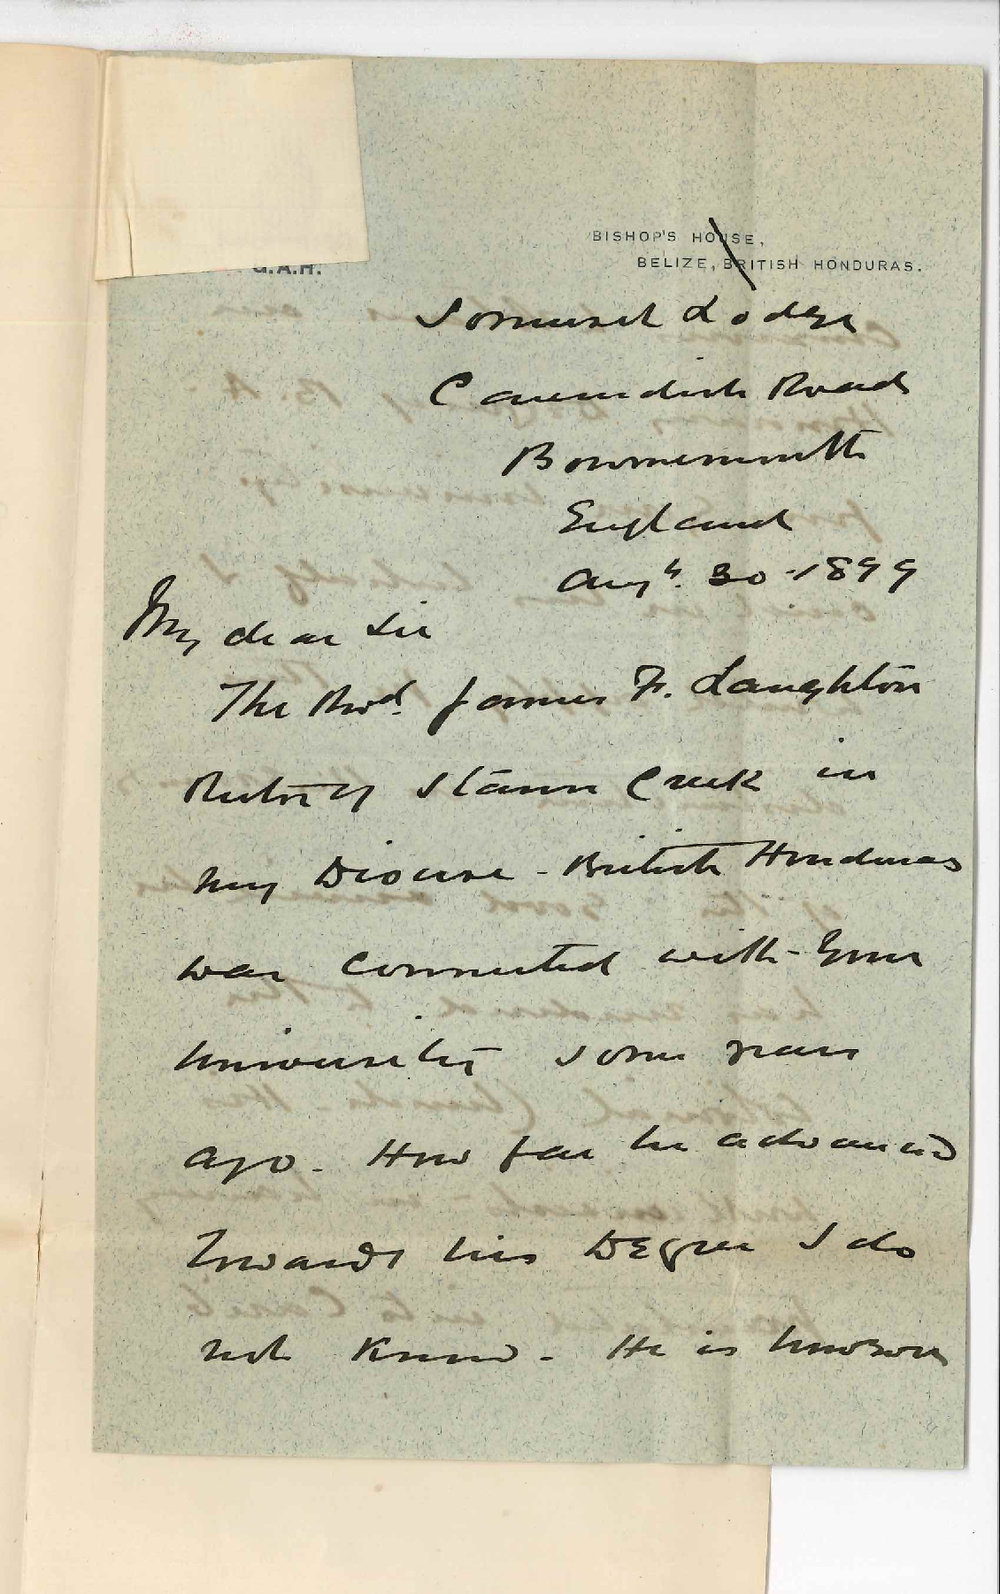 G.A.H.
BISHOP'S HOUSE,
BELIZE, BRITISH HONDURAS.
Somerset Lodge
Cavendish Road
Bournemouth
England
Augt. 30 - 1899
My dear Sir
The Revd. James F. Laughton
Rector of Stann Creek in
my Diocese - British Honduras
was connected with your
University some years
ago - How far he advanced
towards his Degree I do
not know - He is